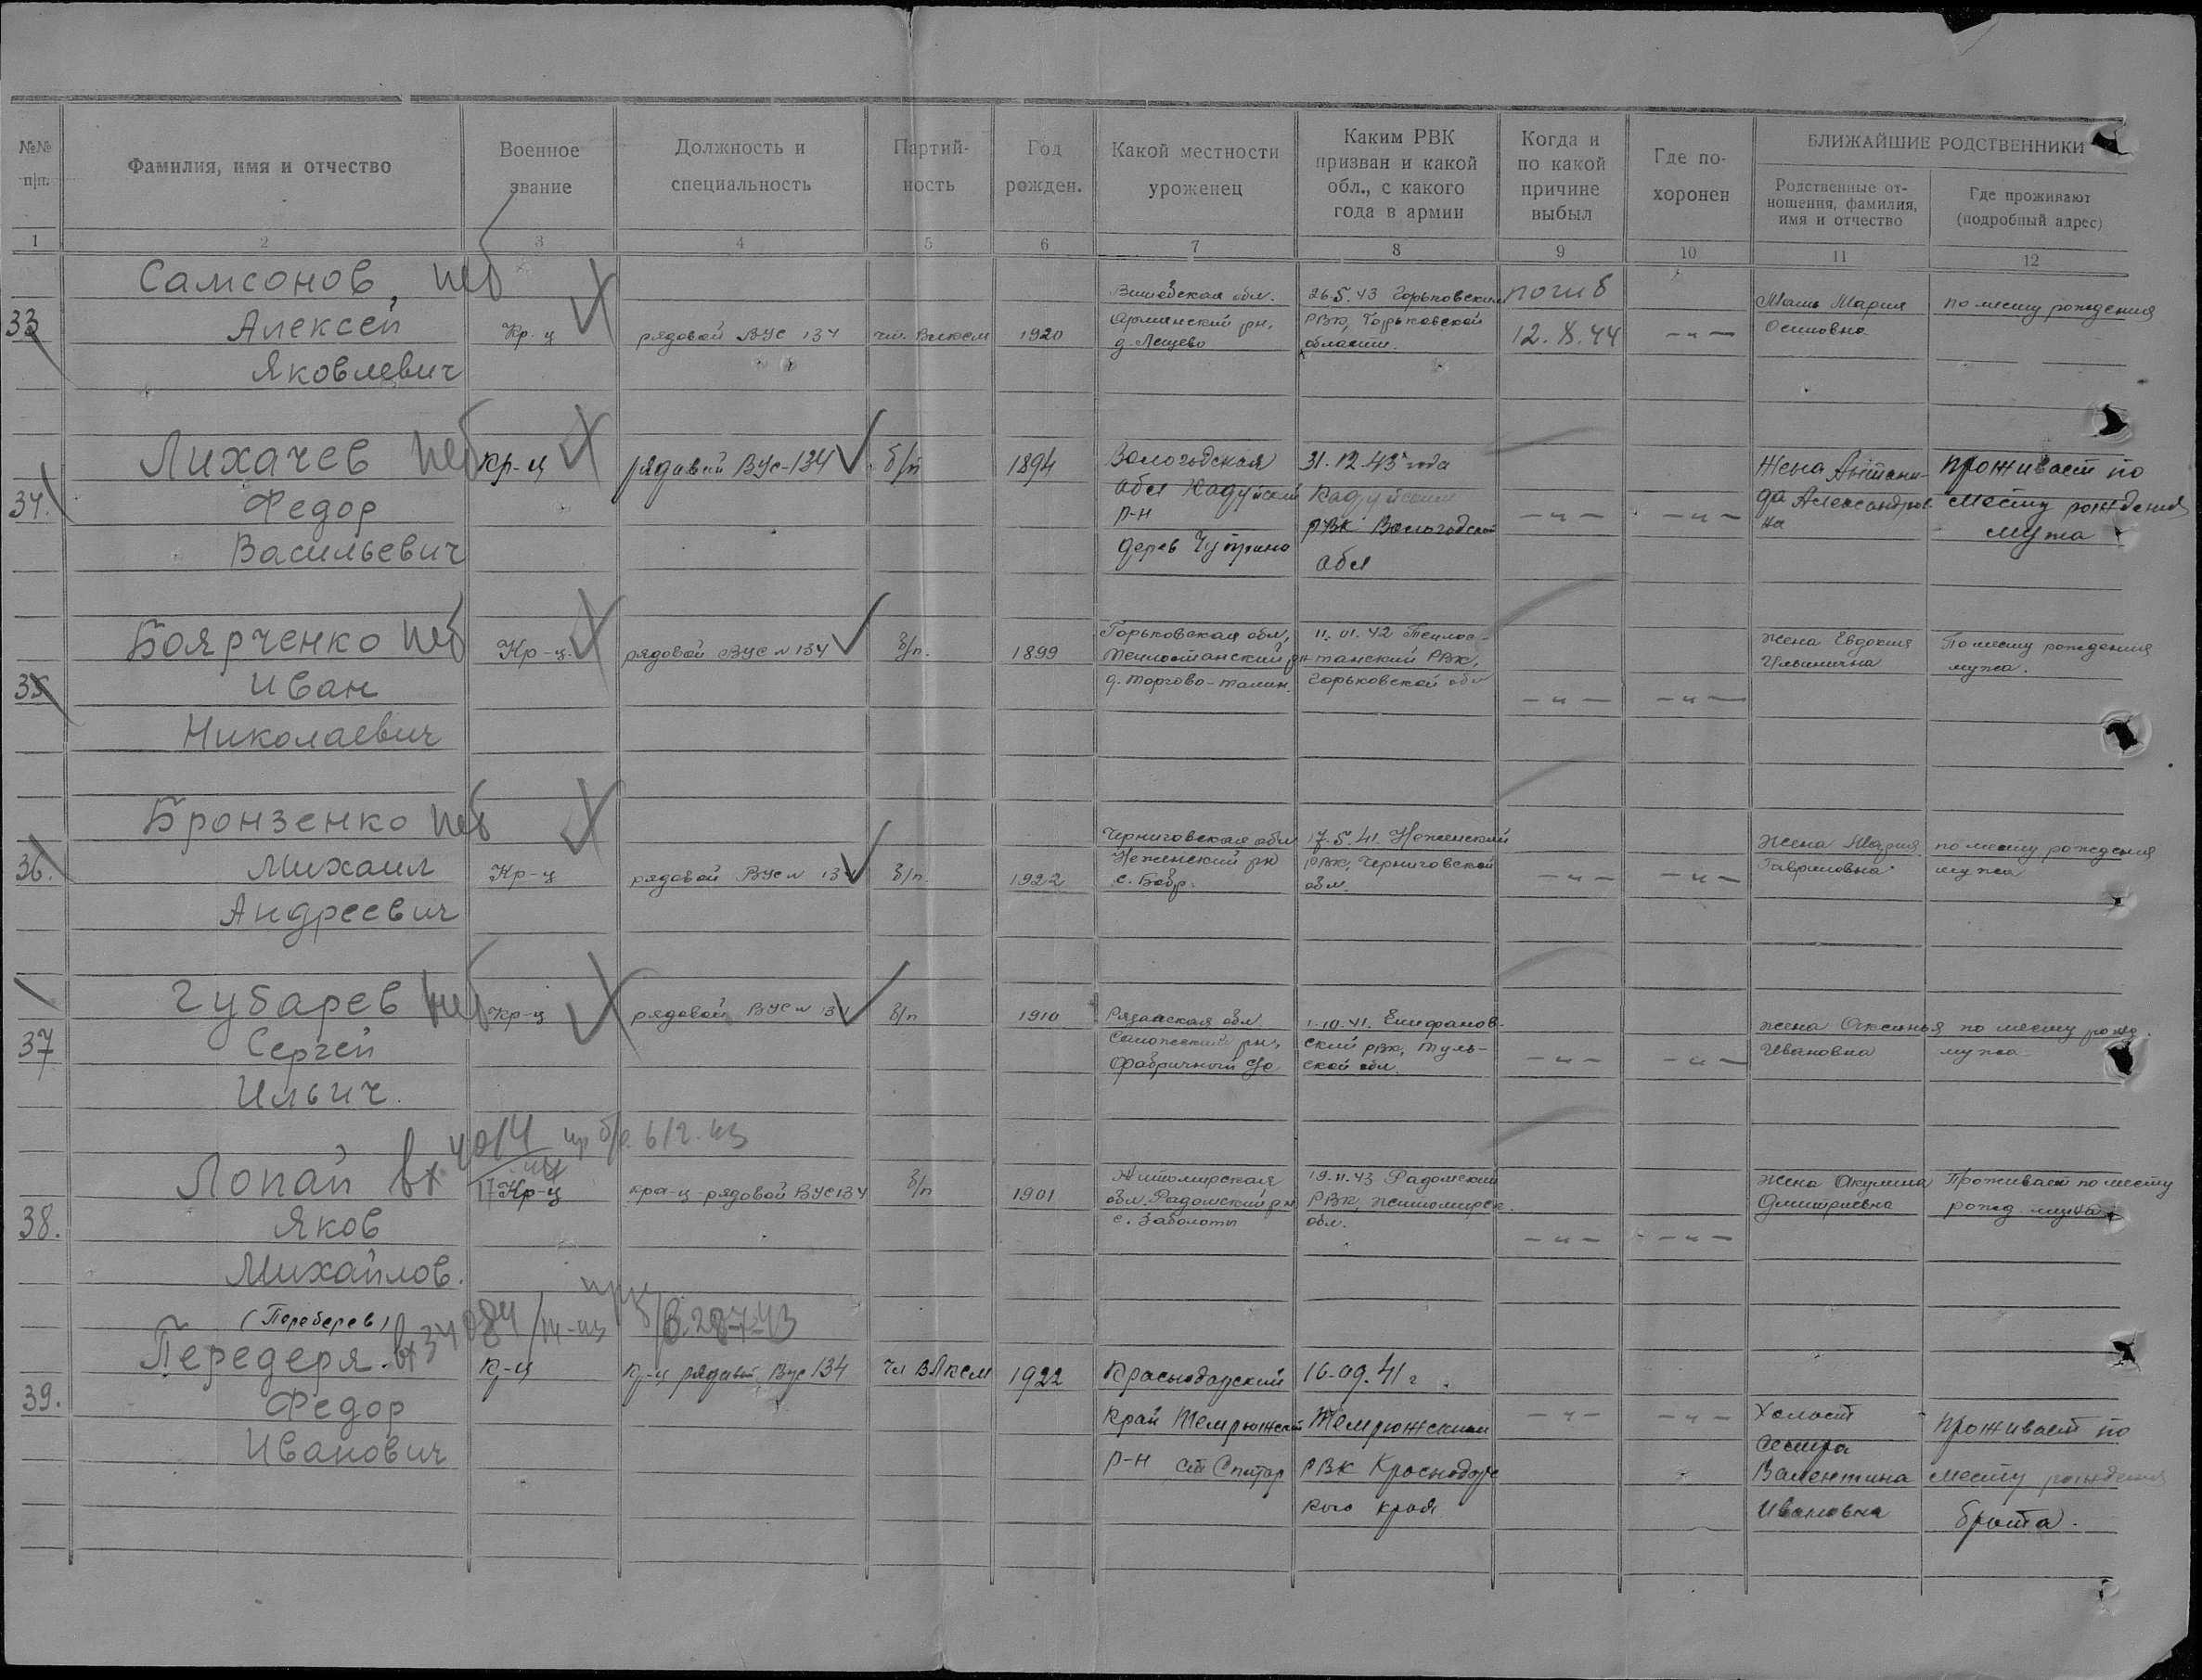 №№ п/п.
Фамилия, имя и отчество
Военное звание
Должность и специальность
Партий- ность
Год рожден.
Какой местности уроженец
Каким РВК призван и какой обл., с какого года в армии
Когда и по какой причине выбыл
Где по- хоронен
БЛИЖАЙШИЕ РОДСТВЕННИКИ
Родственные от- ношения, фамилия, имя и отчество
Где проживают (подробный адрес)
1 2 3 4 5 6 7 8 9 10 11 12
33
Самсонов,
Алексей
Яковлевич
Кр-ц
рядовой ВУС 134
чл. Влксм
1920
обл.
рн,
д. Лещево
26.5.43 Горьковским
РВК, Горьковской
области.
погиб
12.8.44
— " —
Мать Мария
Осиповна
по месту рождения
34.
Лихачев
Федор
Васильевич
кр-ц
рядовой ВУС-134
б/п
1894
Вологодская
обл Кадуйский
р-н
дерев Чуприно
31.12.43 года
Кадуйским
РВК Вологодской
обл
— " —
— " —
Жена Антони-
да Александров-
на
проживает по
месту рождения
мужа
35
Боярченко
Иван
Николаевич
Кр-ц.
рядовой ВУС № 134
б/п.
1899
Горьковская обл,
Теплостанский рн
д. Торгово-Талин.
11.01.42 Теплос-
танский РВК,
Горьковской обл
— " —
— " —
Жена Евдокия
Ильинична
По месту рождения
мужа.
36.
Бронзенко
Михаил
Андреевич
Кр-ц
рядовой ВУС № 134
б/п.
1922
Черниговская обл
Неженский рн
с. Бобр.
17.5.41 Неженский
РВК, Черниговской
обл.
— " —
— " —
Жена Мария
Гавриловна
по месту рождения
мужа
37
Губарев
Сергей
Ильич.
Кр-ц
рядовой ВУС № 134
б/п
1910
Рязанская обл
рн,
Фабричный
1-10-41. Епифанов-
ский РВК, Туль-
ской обл.
— " —
— " —
жена Аксинья
Ивановна
по месту рожд.
мужа
38.
Лопай
Яков
Михайлов.
Кр-ц
кра-ц рядовой ВУС 134
б/п
1901
Житомирская
обл. Радомский рн
с. Заболоты
19.11.43 Радомский
РВК, Житомирск.
обл.
— " —
— " —
Жена Акулина
Дмитриевна
Проживает по месту
рожд. мужа
39.
(Переберев)
Передеря
Федор
Иванович
К-ц
Кр-ц рядовой Вус 134
чл ВЛКСМ
1922
Краснодарский
край Темрюжский
р-н
16-09.41 г.
Темрюжским
РВК Краснодарс
кого края
— " —
— " —
Холост
сестра
Валентина
Ивановна
проживает по
месту рождения
брата.